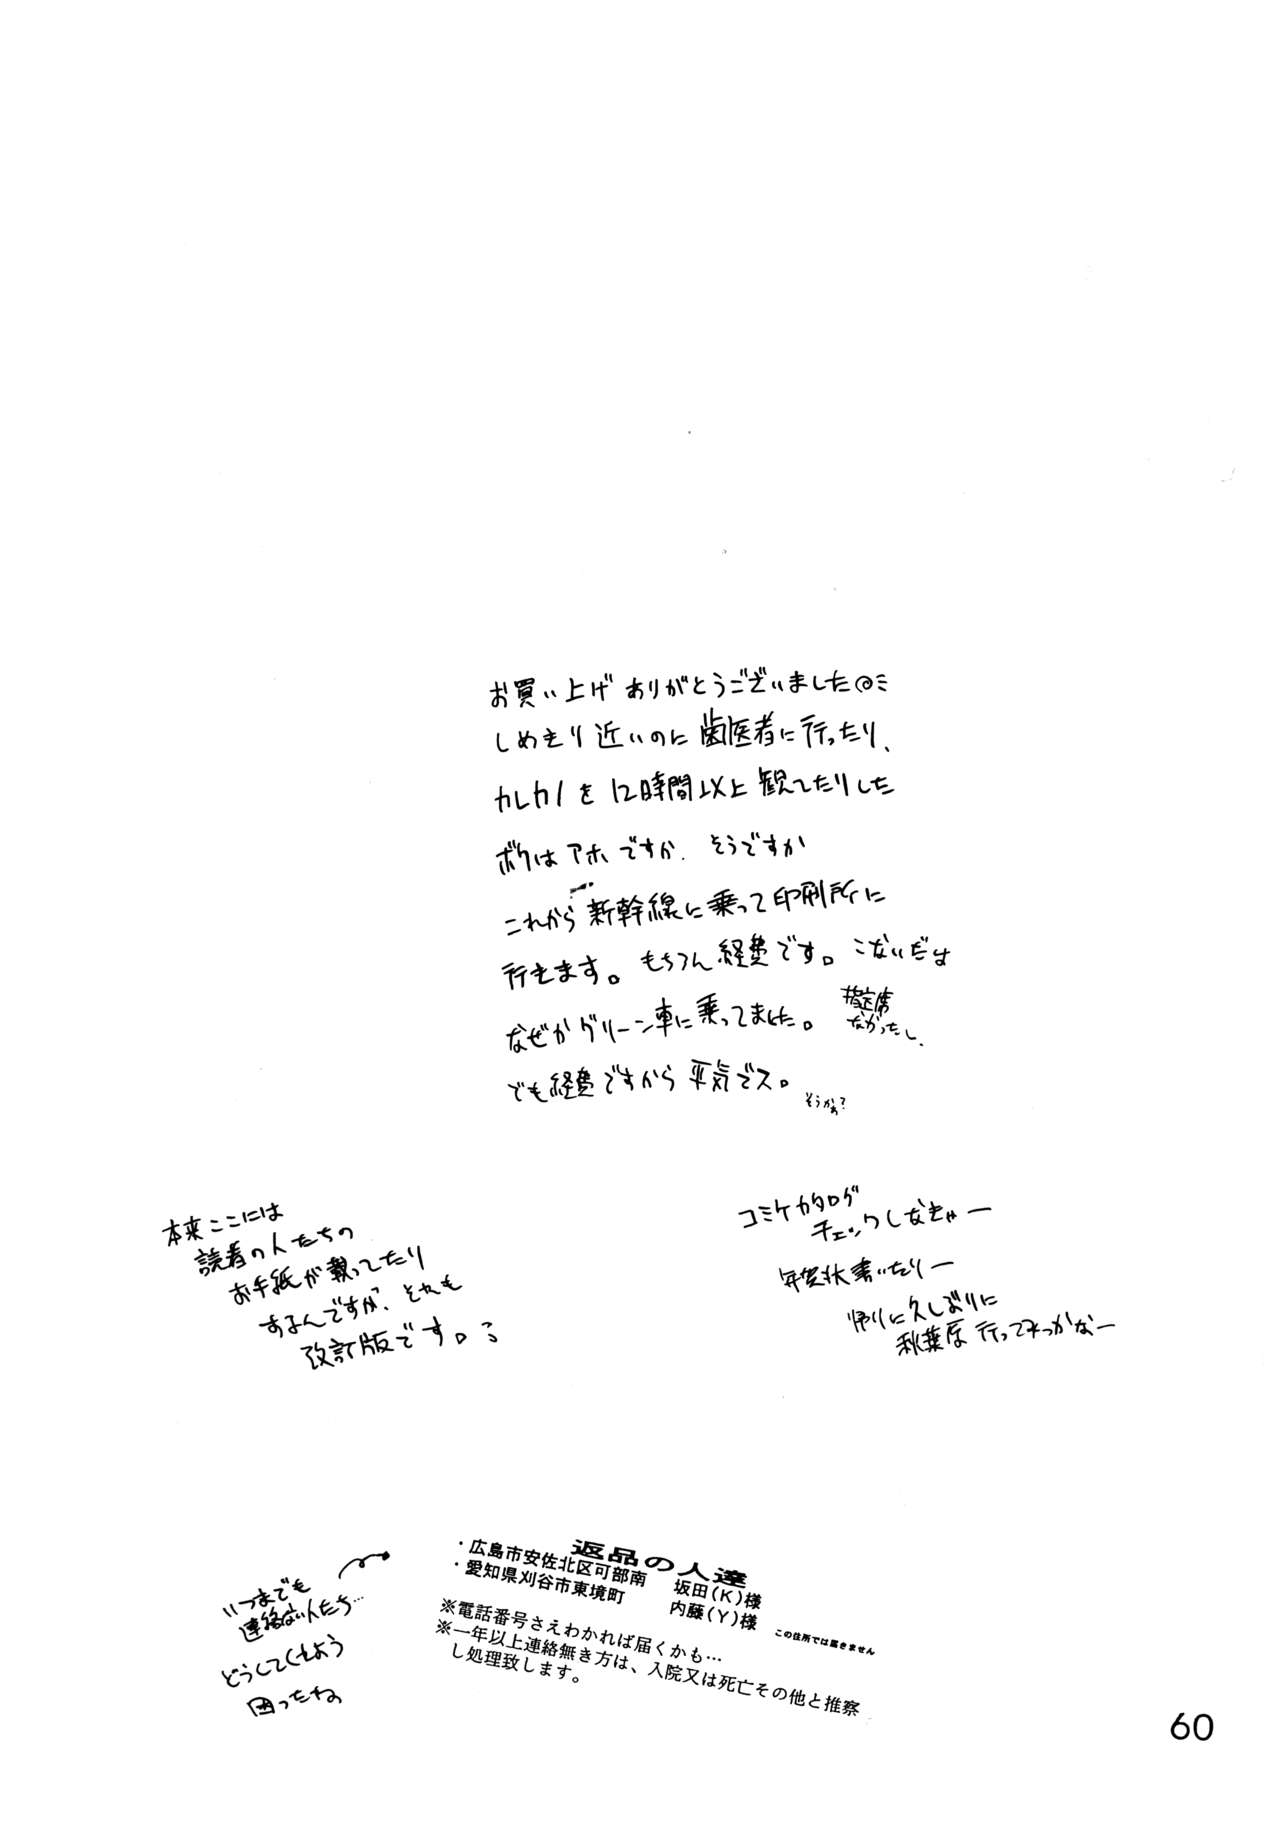 お買い上げありがとうございました@ミ
しめきり近いのに歯医者に行ったり、
カレカノを12時間以上観てたりした
ボクはアホですか. そうですか
これから新幹線に乗って印刷所に
行きます。もちろん経費です。こないだは
なぜかグリーン車に乗ってました。
指定席
なかったし.
でも経費ですから平気でス。
そうかぁ?
本来ここには
読者の人たちの
お手紙が載ってたり
するんですが、それも
改訂版です。
コミケカタログ
チェックしなきゃー
年賀状書いたりー
帰りに久しぶりに
秋葉原行ってみっかなー
いつまでも
連絡ない人たち…
どうしてくれよう
困ったね
返品の人達
・広島市安佐北区可部南 坂田(K)様
・愛知県刈谷市東境町 内藤(Y)様
この住所では届きません
※電話番号さえわかれば届くかも…
※一年以上連絡無き方は、入院又は死亡その他と推察
し処理致します。
60